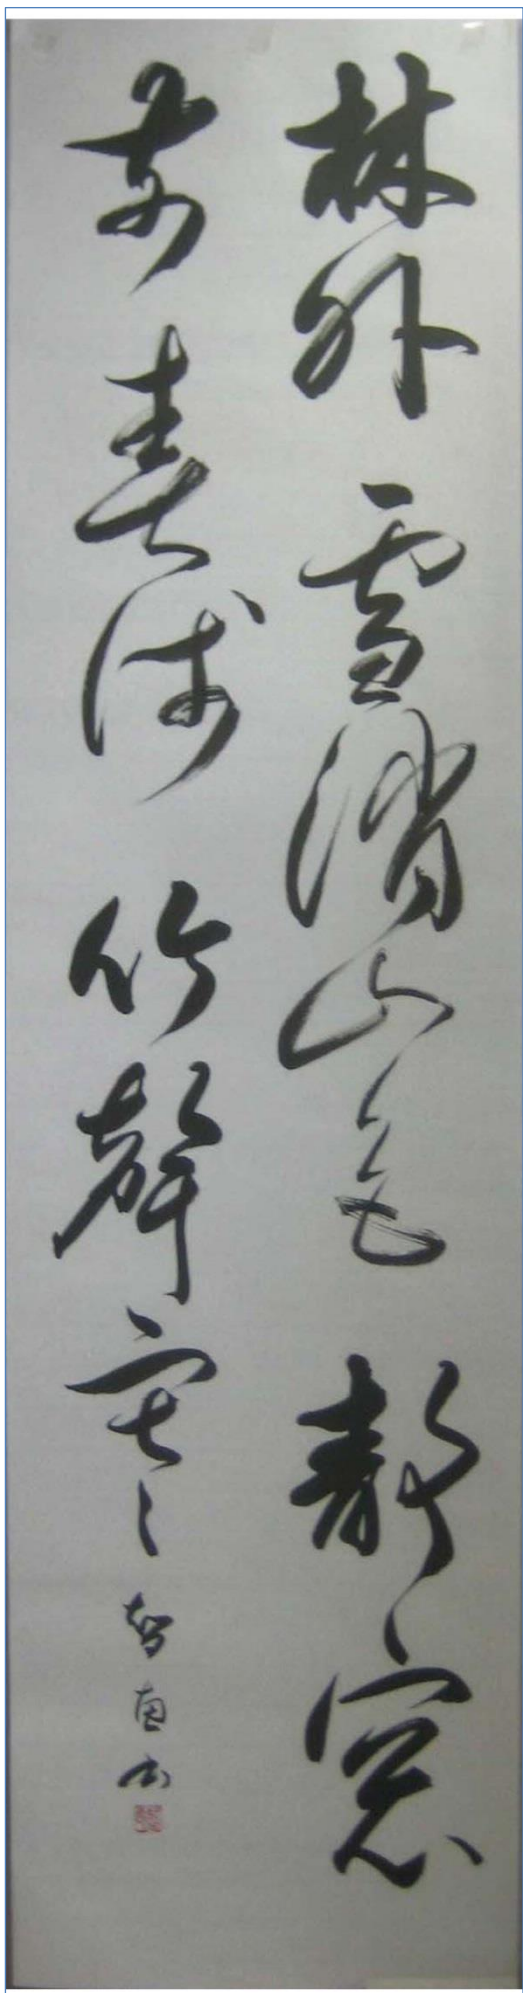 林外雪消山色静窓
前春浅竹聲寒